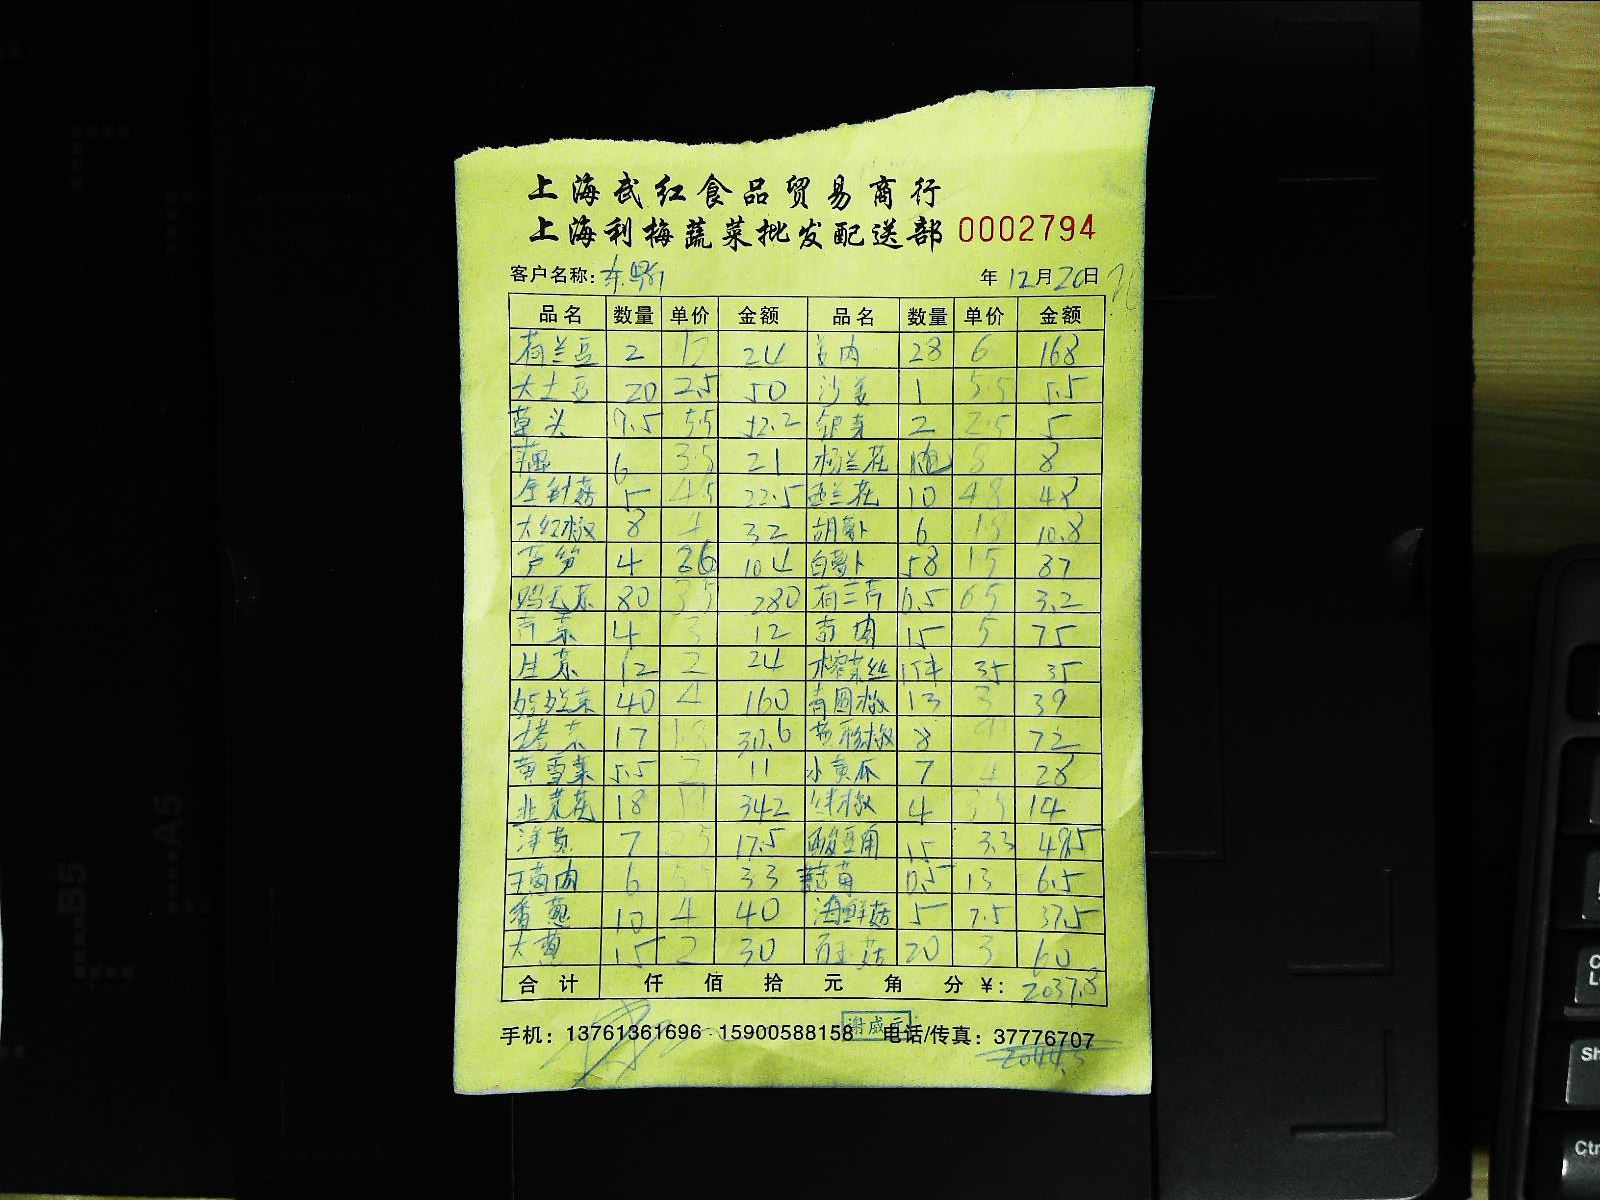 上海武红食品贸易商行
上海利梅蔬菜批发配送部 0002794
客户名称: 年 12月20日
品名 数量 单价 金额 品名 数量 单价 金额
荷兰豆 2 12 24 28 6 168
大土豆 20 2.5 50 沙姜 1 5.5 5.5
草头 9.5 5.5 52.2 银芽 2 2.5 5
藕 6 3.5 21 杨兰花 8 8
金针菇 5 4.5 22.5 西兰花 10 4.8 48
大红椒 8 4 32 胡萝卜 6 1.8 10.8
芦笋 4 26 104 白萝卜 58 1.5 87
鸡毛菜 80 3.5 280 0.5 6.5 3.2
青菜 4 3 12 15 5 75
生菜 12 2 24 榨菜丝 1件 35 35
娃娃菜 40 4 160 青圆椒 13 3 39
17 1.8 30.6 黄彩椒 8 9 72
5.5 2 11 小黄瓜 7 4 28
韭菜花 18 19 342 尖椒 4 3.5 14
洋葱 7 2.5 17.5 酸豆角 15 3.3 49.5
6 5.5 33 0.5 13 6.5
香葱 10 4 40 海鲜菇 5 7.5 37.5
大葱 15 2 30 百玉菇 20 3 60
合计 仟 佰 拾 元 角 分 ¥: 2037.8
手机: 13761361696 15900588158 电话/传真: 37776707
2044.3